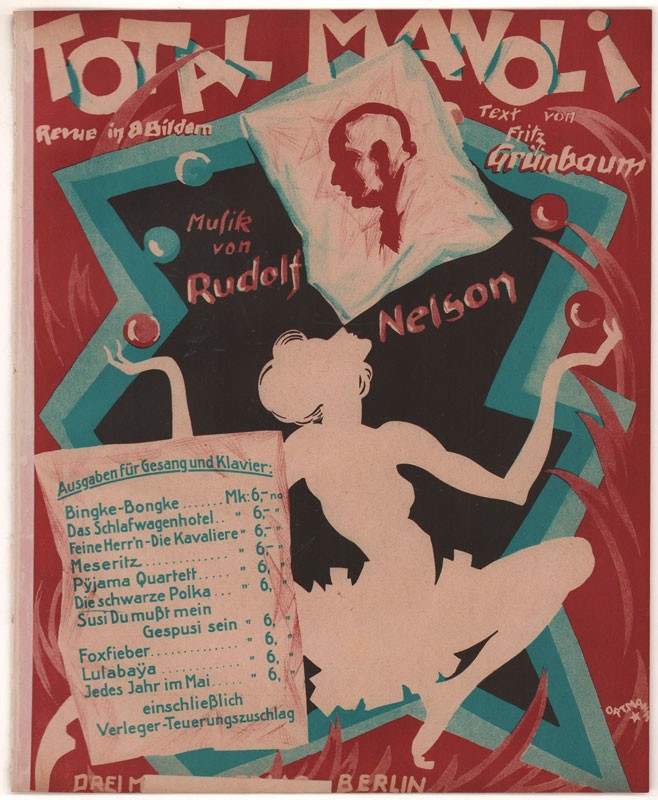 TOTAL MANOLi
Revue in 8 Bildern
Text von
Fritz
Grünbaum
Musik
von
Rudolf
Nelson
Ausgaben für Gesang und Klavier:
Bingke-Bongke ....... Mk: 6,- no
Das Schlafwagenhotel .. " 6,- "
Feine Herr'n - Die Kavaliere " 6,- "
Meseritz ............ " 6,- "
Pÿjama Quartett ..... " 6, "
Die schwarze Polka ... " 6, "
Susi Du mußt mein
Gespusi sein " 6, "
Foxfieber ........... " 6, "
Lulabaÿa ............ " 6, "
Jedes Jahr im Mai ..... " 6, "
einschließlich
Verleger-Teuerungszuschlag
DREI BERLIN